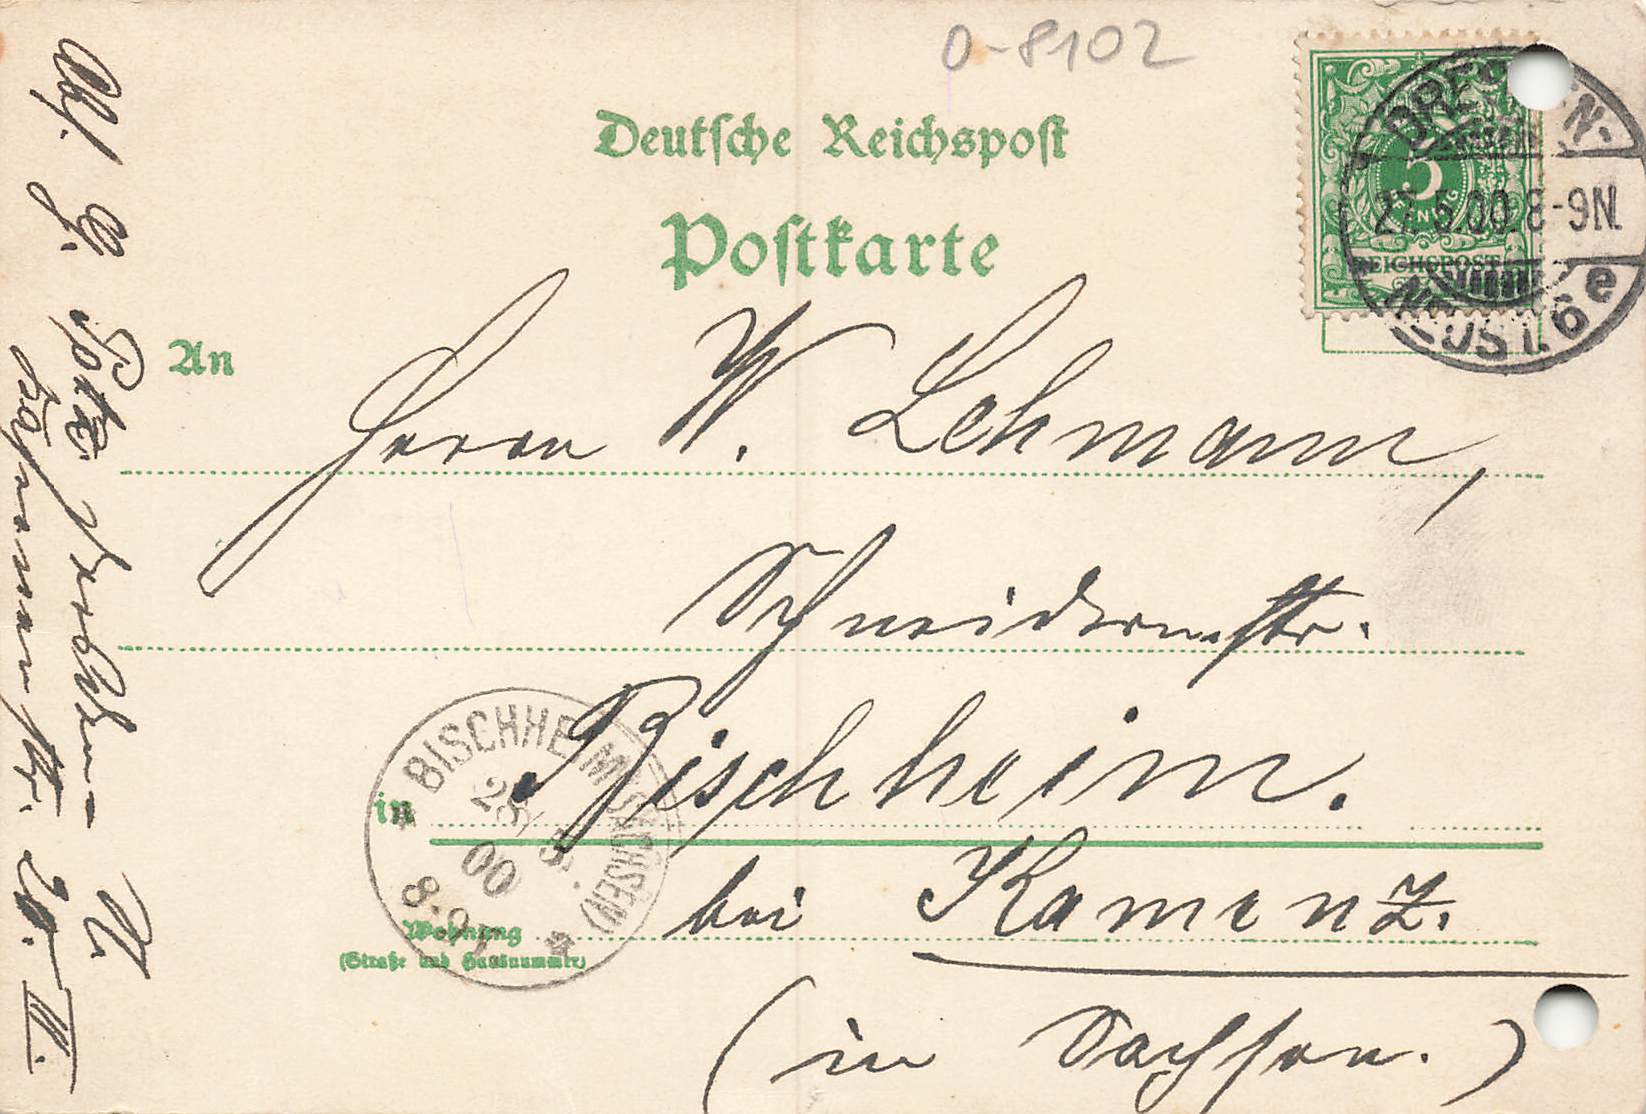 0-8102
Deutsche Reichspost
Postkarte
5
PFENNIG
REICHSPOST
DRESDEN-
27.5.00.8-9N.
NEUST. 6 e
An
Herrn W. Lehmann,
Schneidermstr.
in Bischheim.
bei Kamenz.
(in Sachsen.)
Wohnung
(Straße und Hausnummer)
BISCHHEIM (SACHSEN)
28/5.
00
8-9V
Abs. G.
Dresden N.